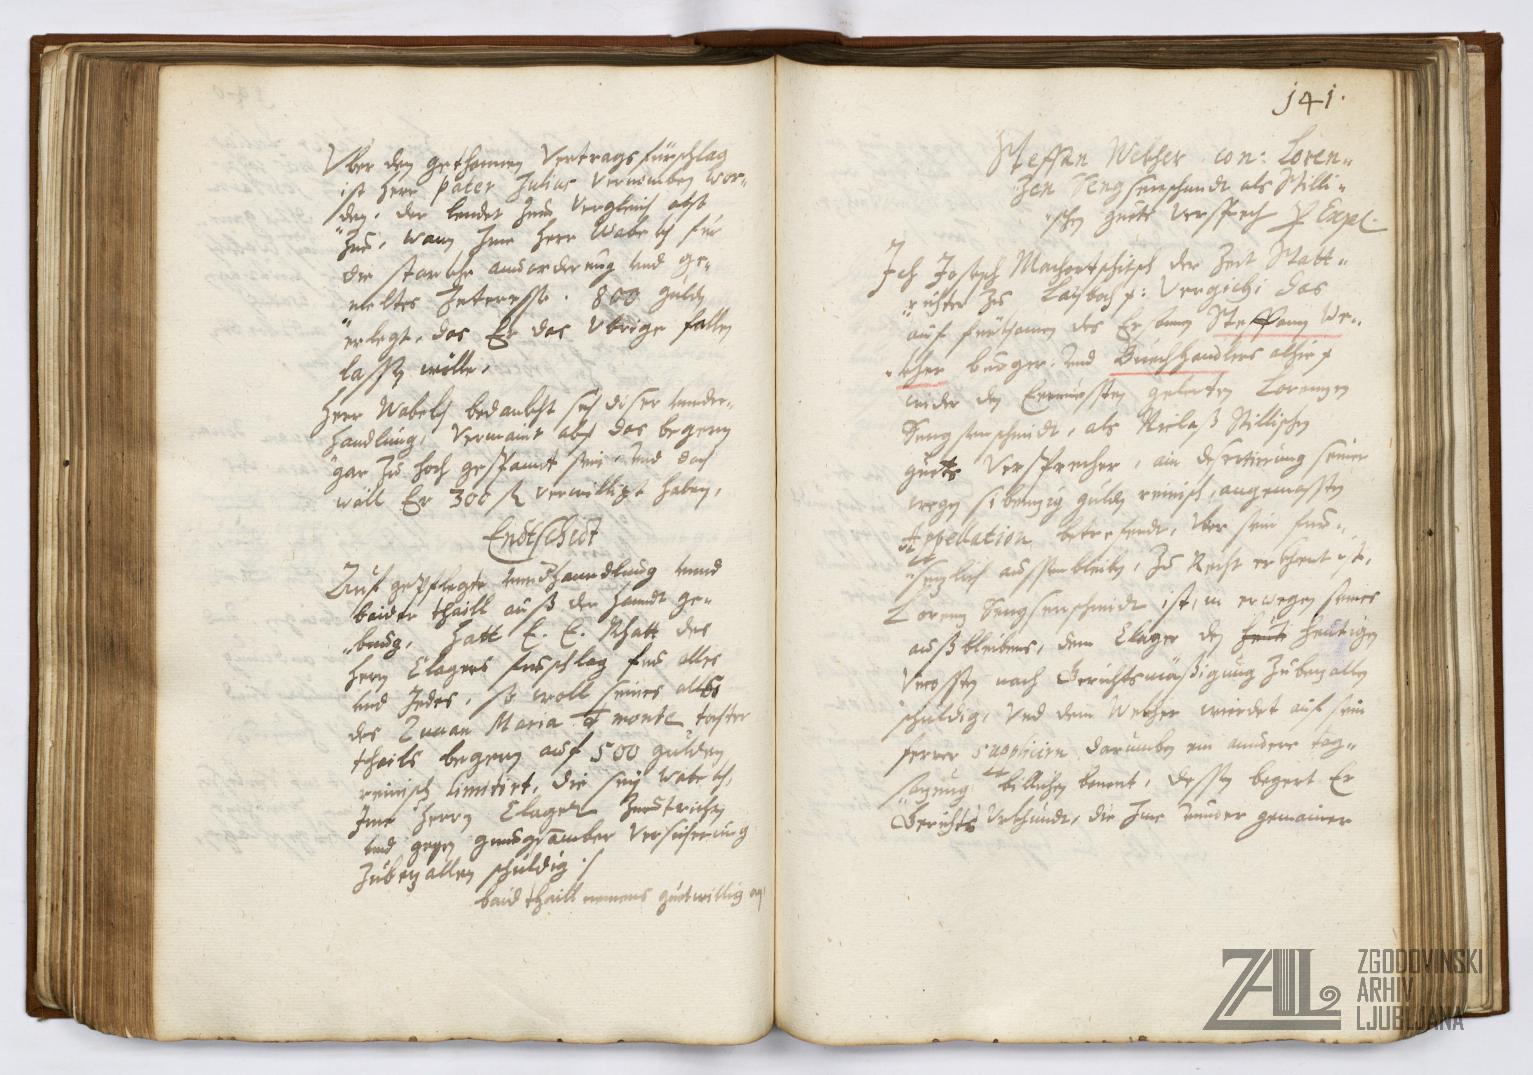 Vber den gethonnen Vertragsfürschlag
ist Herr pater Julius vernomben wor„
den, der lendet zum Vergleich
wann Ime Herr Wabetsch für
die starckhe anuorderung vnd ge„
meltes Interesse. 800 guld
erlegt, das Er das Vbrige fallen
lassen wölle,
Herr Wabetsch bedankht sich diser vnder„
handlung, Vermaint aber das begern
gar zu hoch gespannt sein, vnd doch
wöll Er 300 fl verwilligt haben,
Endtschidt
Auf gepflegte vnnd
baider thaill auß der Handt ge„
bung, Hatt E. E. Rhatt des
Herrn Clagers fürschlag für alles
vnd Jedes, so woll seines alls
des Zuuan Maria monte tochter
thails begern auf 500 gulden
reinisch limitirt, die sein Wabetsch,
Ime Herrn Clager
vnd gegen genuegsamber Versicherung
Zubezallen schuldig ./.
baid thaill nemens guetwillig an
141.
Steffan Weher con: Loren„
zen Sengsenschmidt als Stilli„
schen guets Versprech p Expl.
Ich Joseph Machortschitsch der Zeit Statt„
richter zu Laybach p: Vergich: das
auf fürkhomen des Ersamen Steffann We„
cher burger: vnd Buechhandlers alhie p
wider den Ernuesten gelerten Lorenzen
Sengsenschmidt, als Niclaß Stillischen
guets Versprecher, ain desertierung seiner
wegen sibenzig gulden reinisch, angemassten
Appellation betreffendt, Vber sein für„
sezlich aussenbleiben, zu Recht erkhent ist,
Lorenz Sengsenschmidt ist, in erwegen seines
außbleibens, dem Clager den heut heutigen
Vncossten nach Gerichtsmäßigung Zubezallen
schuldig, Vnd dem Wecher wierdet auf sein
ferrer supplicirn darumben ein andere tag„
sazung billichen benent, dessen begert Er
Gerichts Vrkhundt, die Ime vnnder gemainer
ZAL ZGODOVINSKI
ARHIV
LJUBLJANA